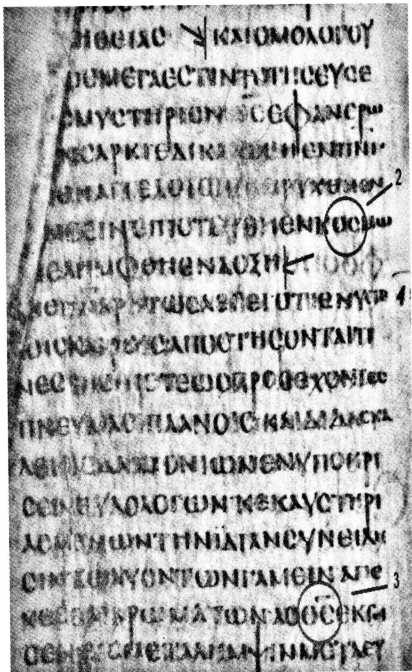 ΗΘΕΙΑC ΚΑΙΟΜΟΛΟΓΟΥ
ΜΕΓΑΕCΤΙΝΤΟΤΗCΕΥCΕ
ΜΥCΤΗΡΙΟΝ ΘC ΕΦΑΝΕΡΩ
CΑΡΚΙΕΔΙΚΑΙΩΘΗΕΝΠΝΙ
ΑΓΓΕΛΟΙCΕΚΗΡΥΧΘΗΕΝ
ΝΕCΙΝΕΠΙCΤΕΥΘΗΕΝΚΟCΜΩ 2
ΝΕΛΗΜΦΘΗΕΝΔΟΞΗ
ΡΗΤΩCΛΕΓΕΙΟΤΙΕΝΥCΤΕ 1
ΡΟΙCΚΑΙΡΟΙCΑΠΟCΤΗCΟΝΤΑΙΤΙ
ΝΕCΤΗCΠΙCΤΕΩCΠΡΟCΕΧΟΝΤΕC
ΠΝΕΥΜΑCΙΠΛΑΝΟΙCΚΑΙΔΙΔΑCΚΑ
ΛΕΙΑΙCΔΑΙΜΟΝΙΩΝΕΝΥΠΟΚΡΙ
CΕΙΨΕΥΔΟΛΟΓΩΝΚΕΚΑΥCΤΗΡΙ
ΑCΜΕΝΩΝΤΗΝΙΔΙΑΝCΥΝΕΙΔΗ
CΙΝΚΩΛΥΟΝΤΩΝΓΑΜΕΙΝΑΠΕ
ΧΕCΘΑΙΒΡΩΜΑΤΩΝΑΟΘCΕΚΤΙ 3
CΕΝΕΙCΜΕΤΑΛΗΜΨΙΝΜΕΤΑΕΥ